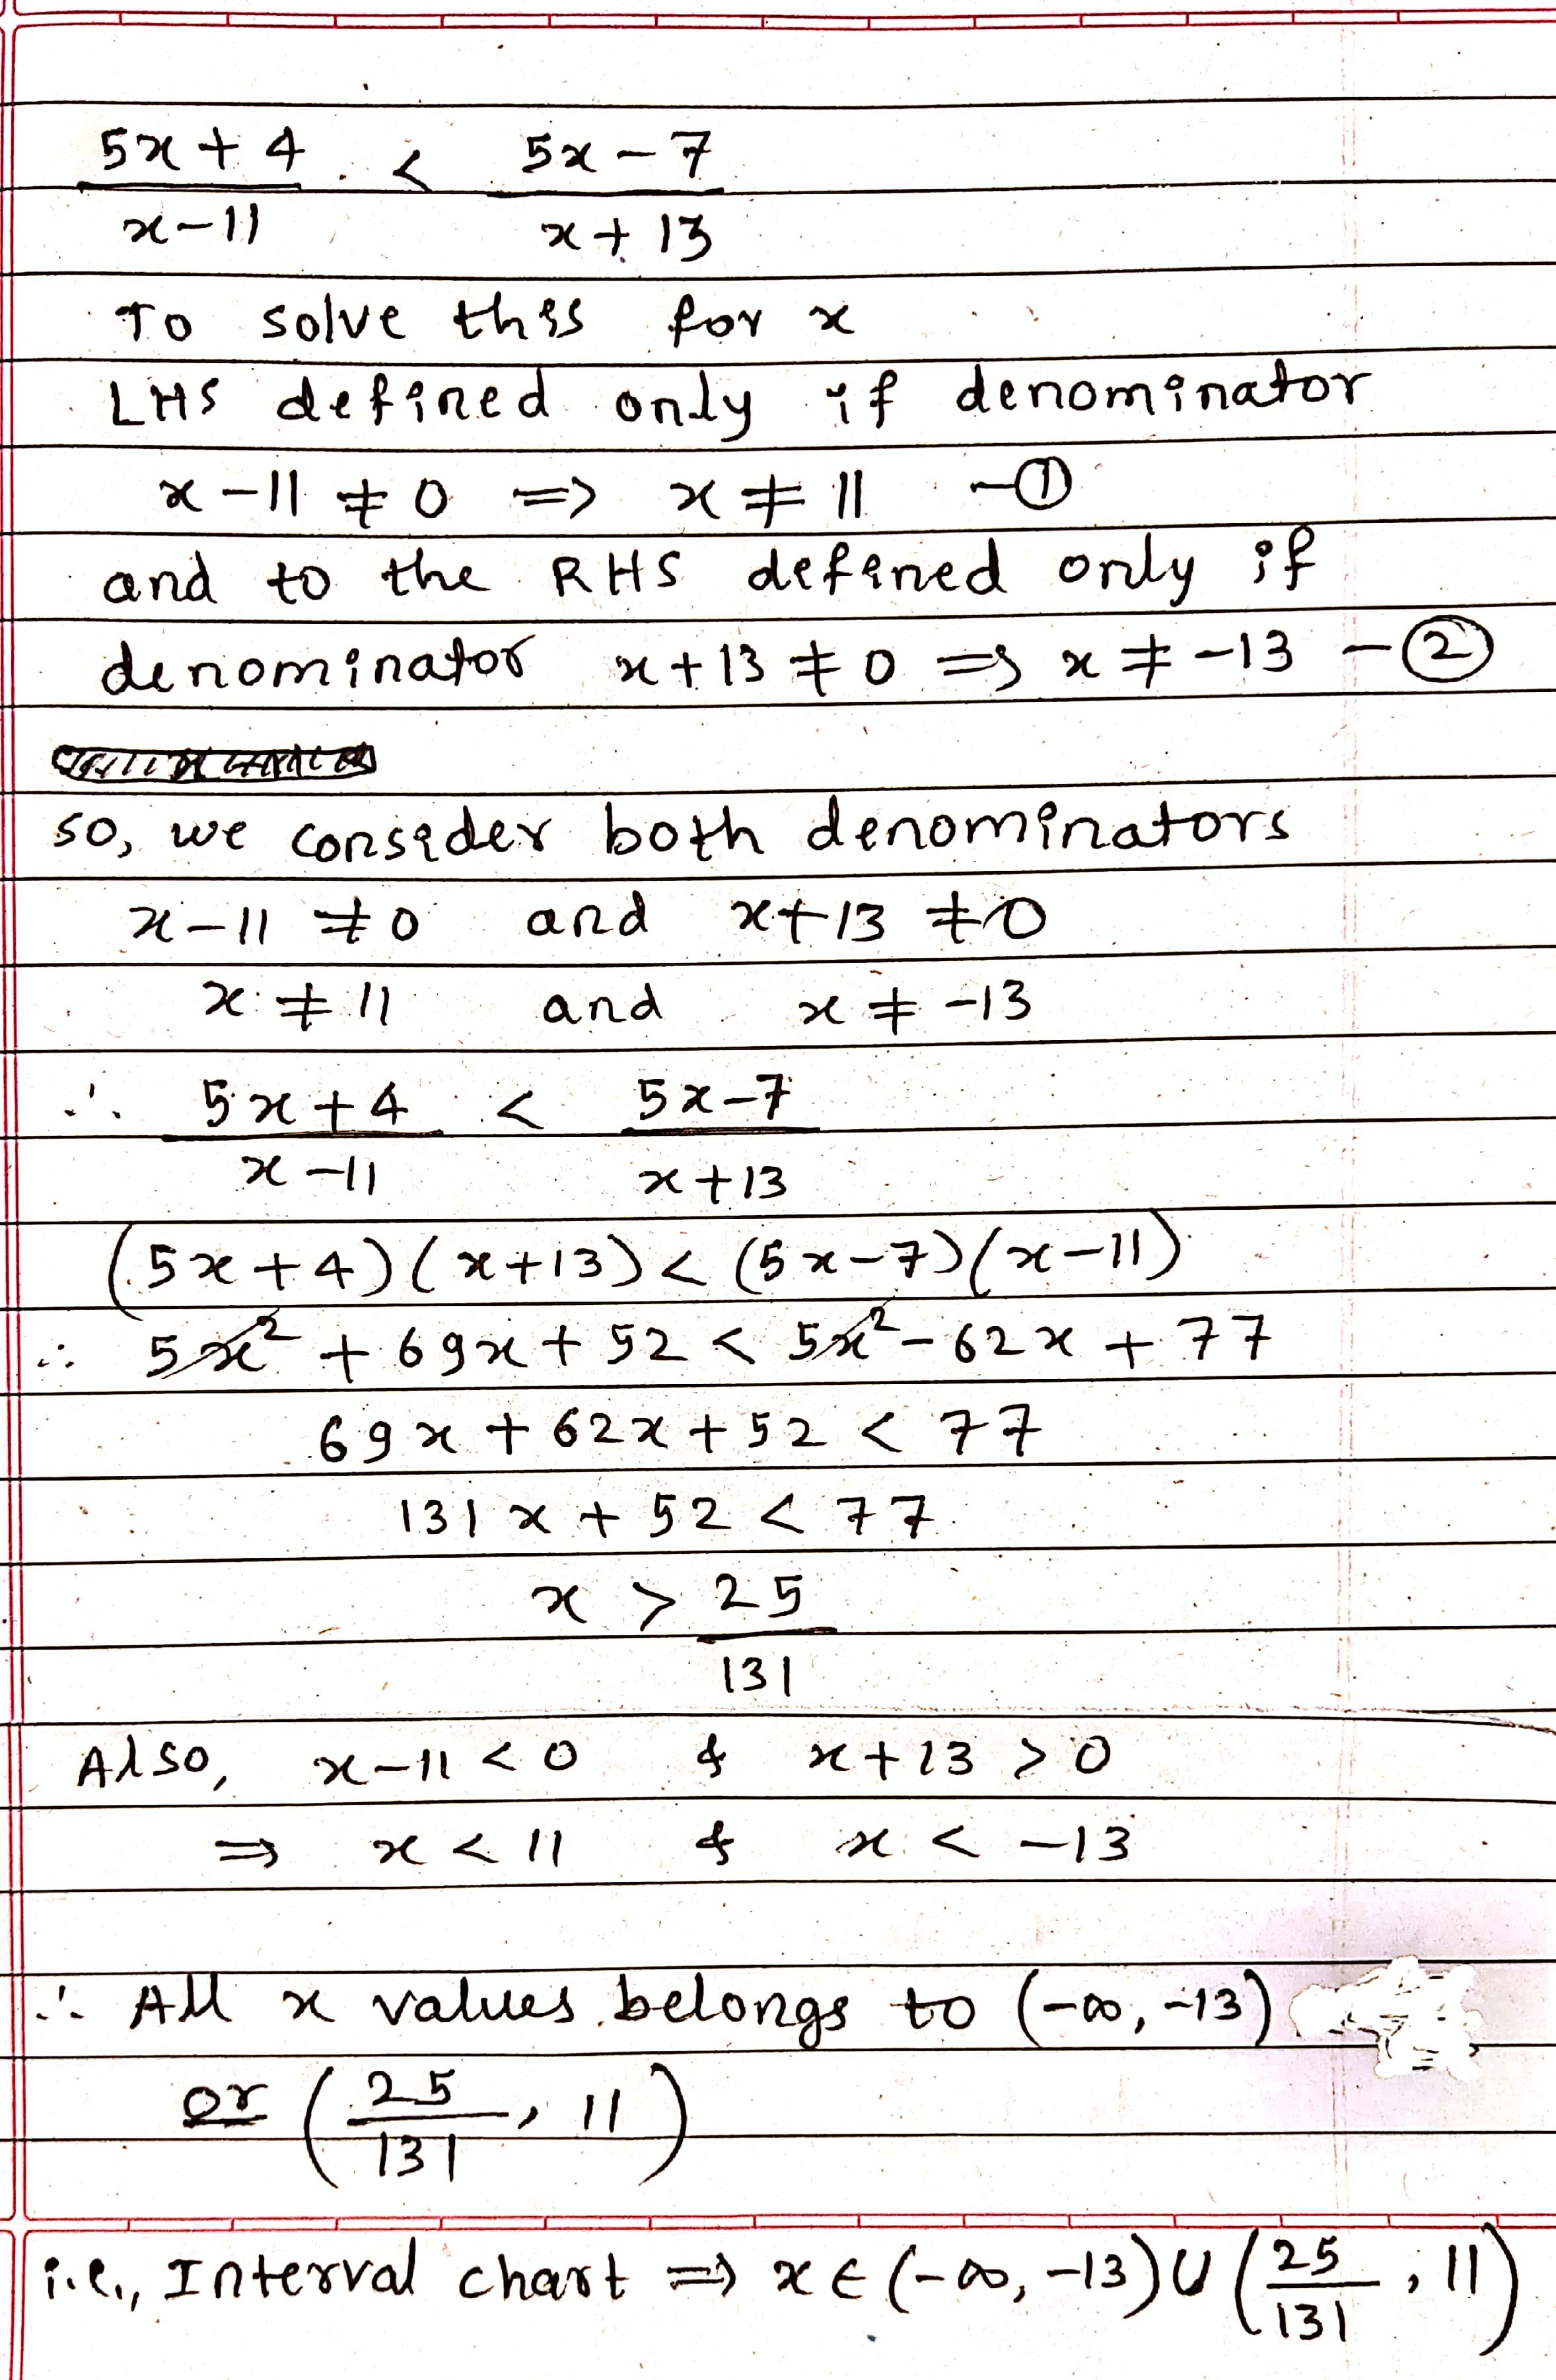 5x + 4 < 5x - 7
x - 11 x + 13
To solve this for x
LHS defined only if denominator
x - 11 ≠ 0 => x ≠ 11 - ①
and to the RHS defined only if
denominator x + 13 ≠ 0 => x ≠ -13 - ②
so, we consider both denominators
x - 11 ≠ 0 and x + 13 ≠ 0
x ≠ 11 and x ≠ -13
∴ 5x + 4 < 5x - 7
x - 11 x + 13
(5x + 4)(x + 13) < (5x - 7)(x - 11)
∴ 5x² + 69x + 52 < 5x² - 62x + 77
69x + 62x + 52 < 77
131x + 52 < 77
x > 25
131
Also, x - 11 < 0 & x + 13 > 0
=> x < 11 & x < -13
∴ All x values belongs to (-∞, -13)
or (25/131, 11)
i.e., Interval chart => x ∈ (-∞, -13) ∪ (25/131, 11)